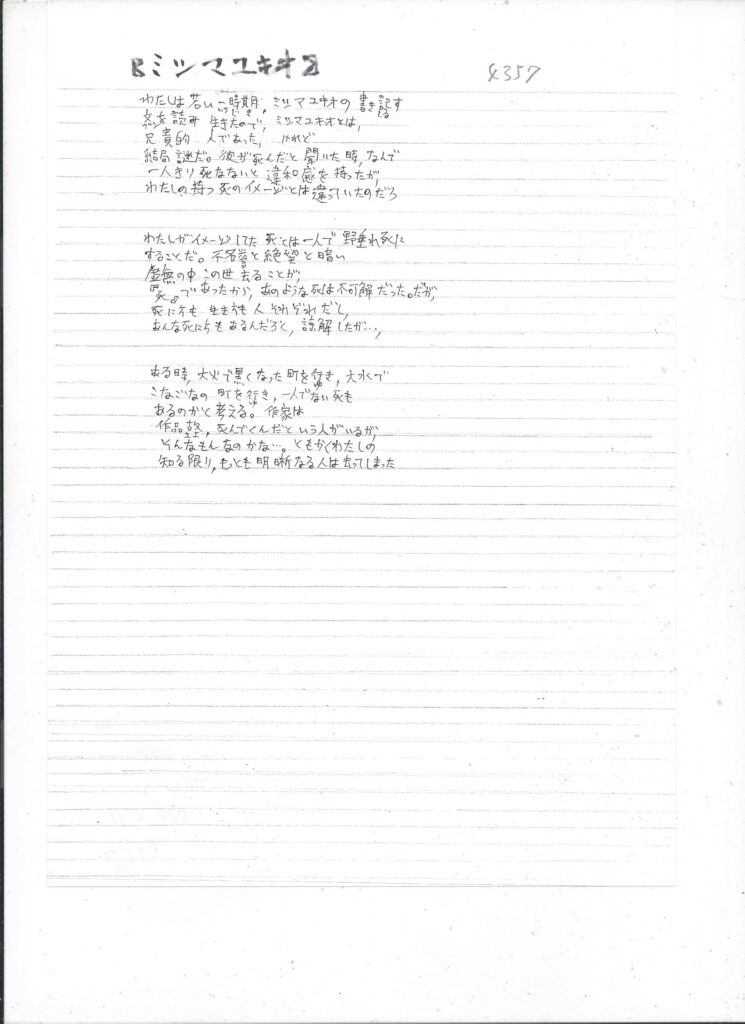 『ミツマユキオ』 4357
わたしは若い一時期、ミツマユキオの書き記す
文を読み生きたので、ミツマユキオとは、
兄貴的人であった、けれど
結局謎だ。彼が死んだと聞いた時、なんで
一人きり死なないと違和感を持ったが、
わたしの持つ死のイメージとは違っていたのだろ
わたしがイメージしてた死とは一人で野垂れ死に
することだ。不名誉と絶望と暗い
虚無の中この世去ることが、
『死』であったから、あのような死は不可解だった。だが、
死に方も生き方も人それぞれだし、
あんな死に方もあるんだろと、諒解したが…、
ある時、大火で黒くなった町を行き、大水で
こなごなの町を行き、一人でない死も
あるのかと考える。作家は
作品整、死んでくんだという人がいるが、
そんなもんなのかな…。ともかくわたしの
知る限り、もっとも明晰なる人は去ってしまった